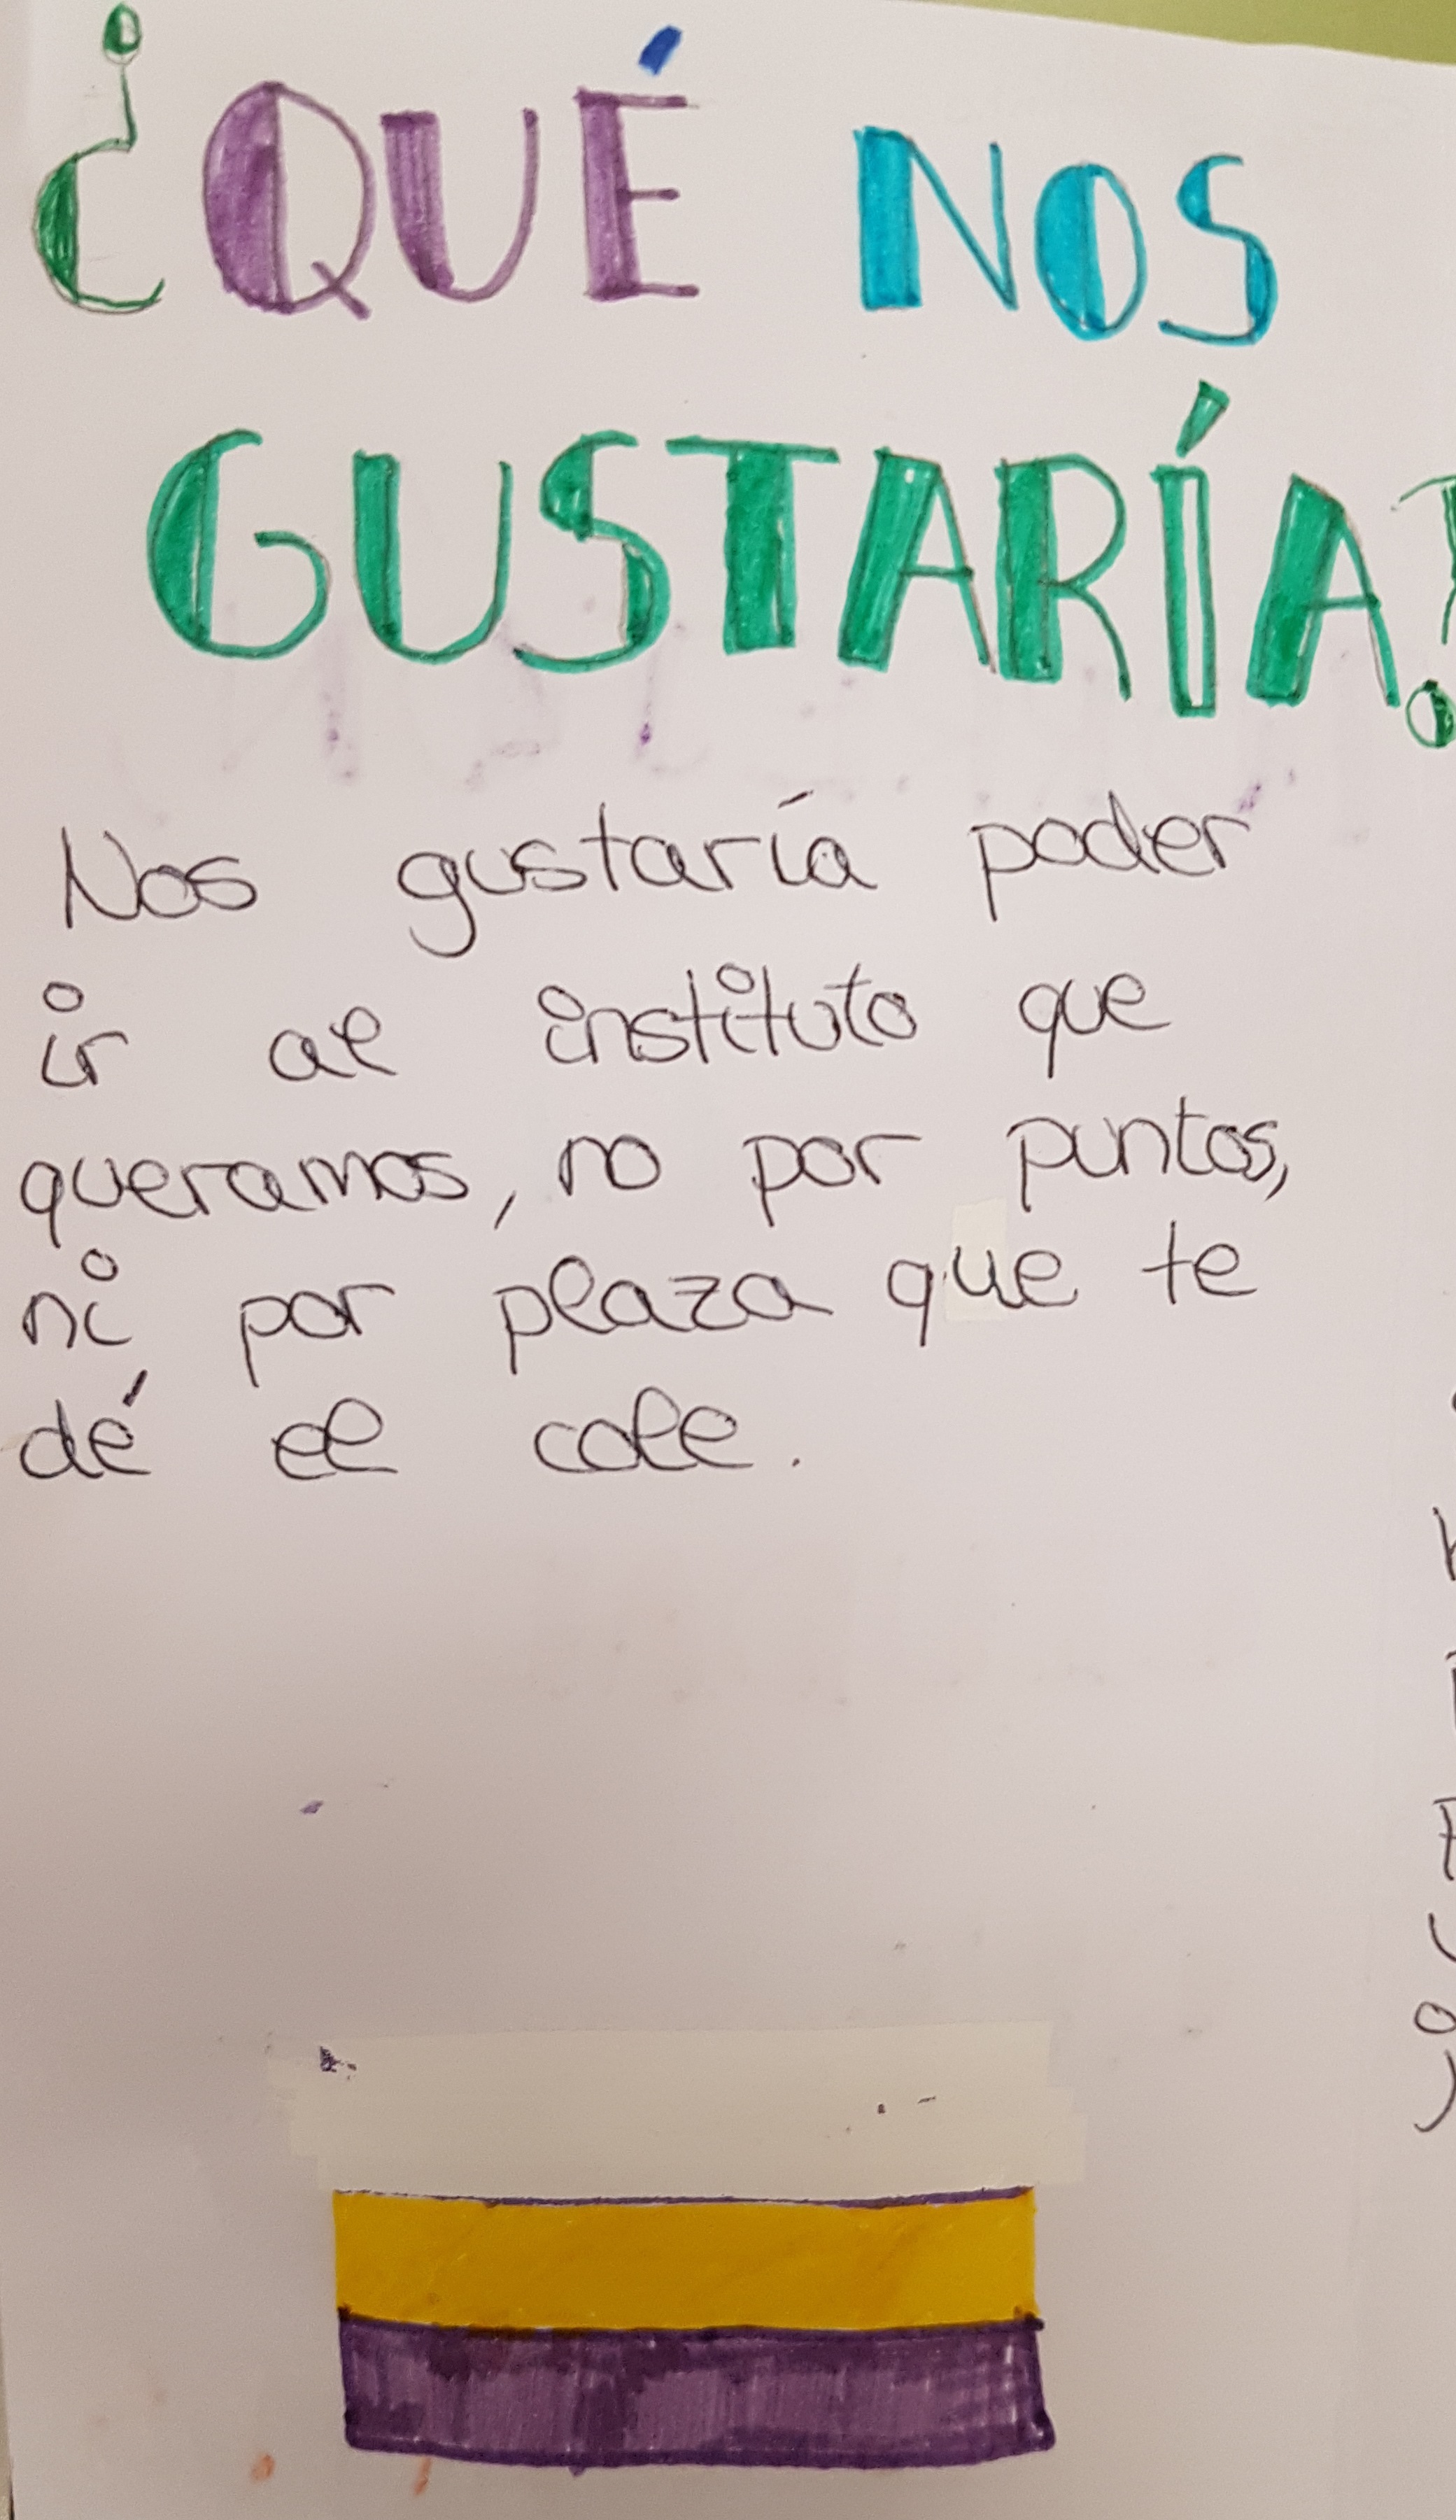 ¿QUÉ NOS
GUSTARÍA?
Nos gustaría poder
ir al instituto que
queramos, no por puntos,
ni por plaza que te
dé el cole.